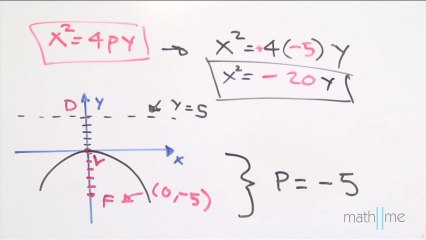 x² = 4py → x² = +4(-5) y
x² = - 20 y
D y y = 5
x
V
F (0,-5)
P = -5
math me